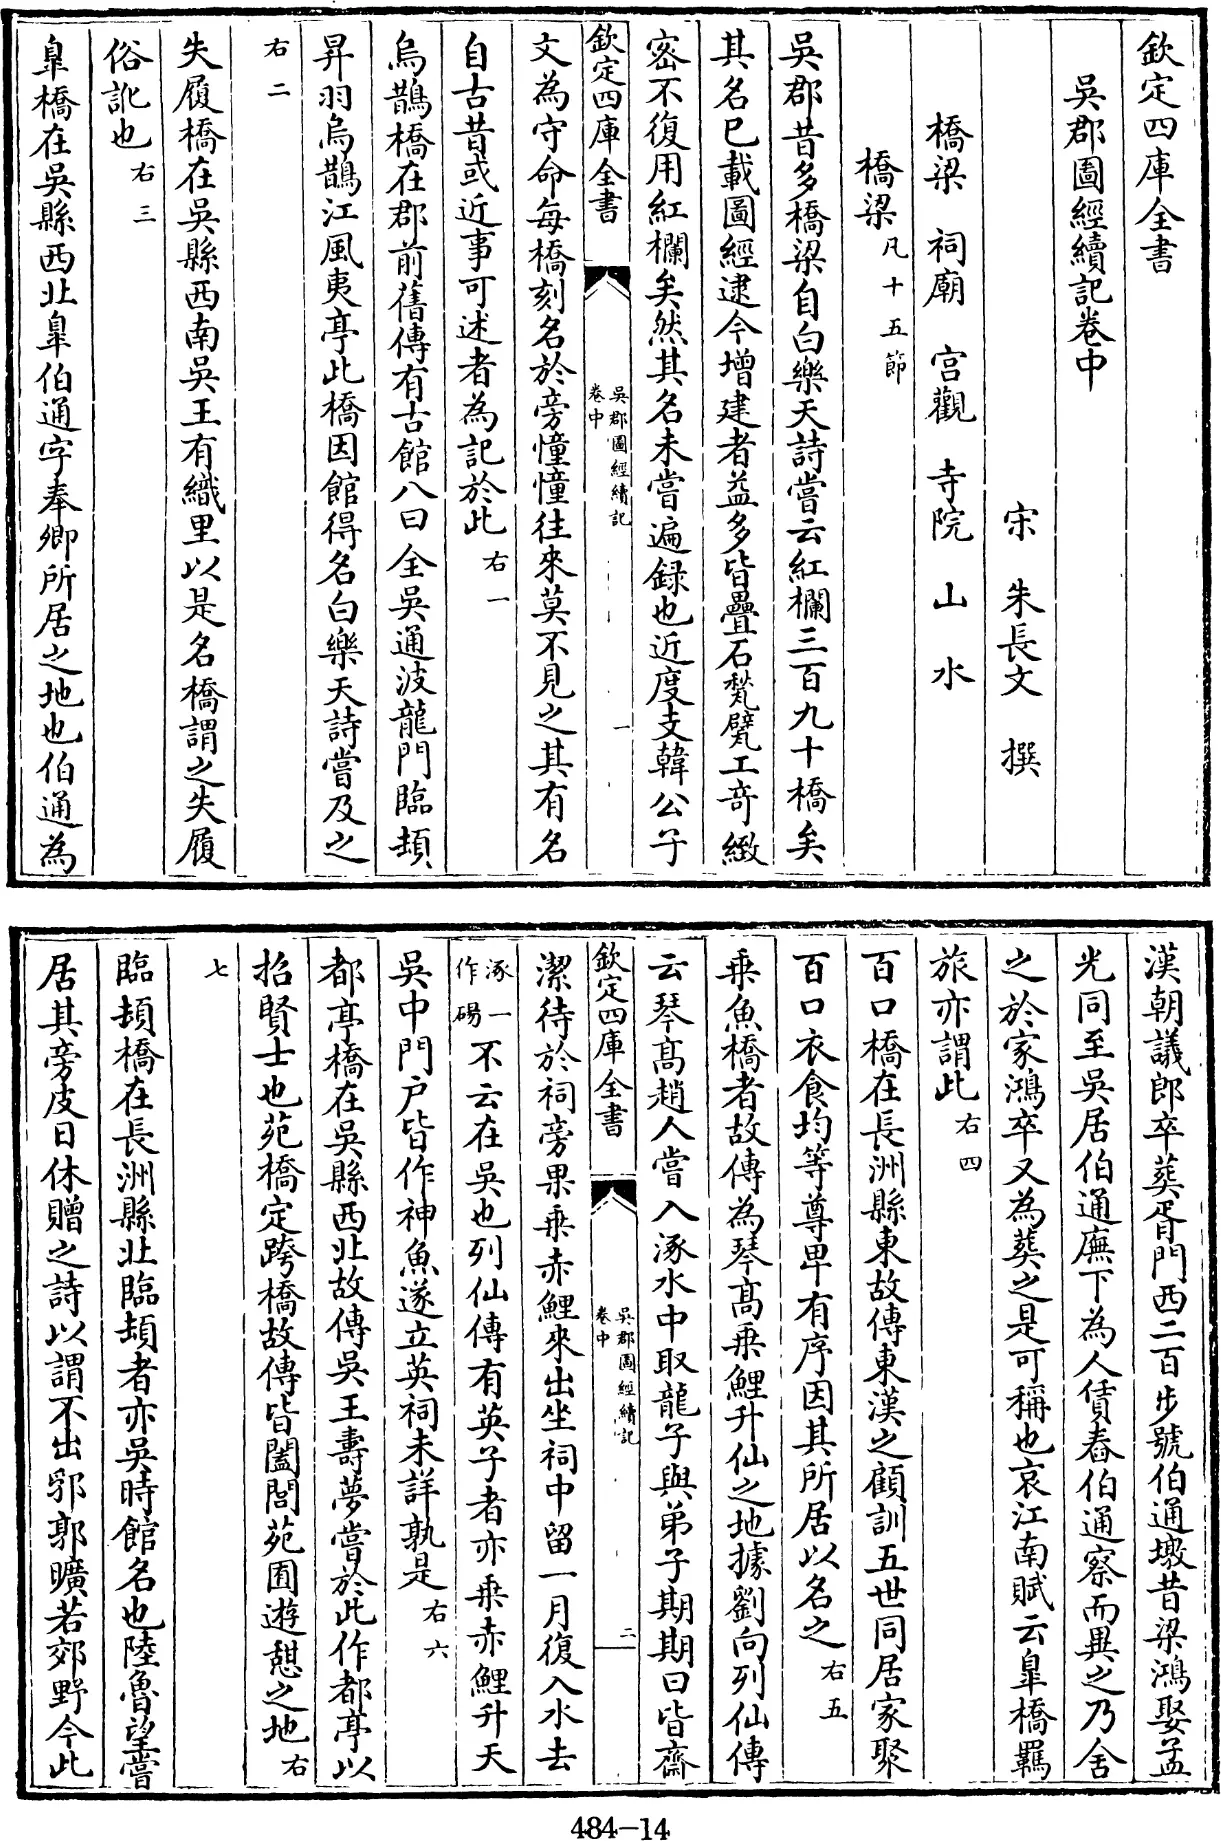 欽定四庫全書
吳郡圖經續記卷中
宋 朱長文 撰
橋梁 祠廟 宫觀 寺院 山 水
橋梁凡十五節
吳郡昔多橋梁自白樂天詩嘗云紅欄三百九十橋矣
其名已載圖經逮今增建者益多皆疊石甃甓工奇緻
密不復用紅欄矣然其名未嘗遍録也近度支韓公子
欽定四庫全書
吳郡圖經續記
卷中
一
文為守命每橋刻名於旁憧憧往來莫不見之其有名
自古昔或近事可述者為記於此右一
烏鵲橋在郡前舊傳有古館八曰全吳通波龍門臨頓
昇羽烏鵲江風夷亭此橋因館得名白樂天詩嘗及之
右二
失履橋在吳縣西南吳王有織里以是名橋謂之失履
俗訛也右三
臯橋在吳縣西北臯伯通字奉卿所居之地也伯通為
漢朝議郎卒葬胥門西二百步號伯通墩昔梁鴻娶孟
光同至吳居伯通廡下為人賃舂伯通察而異之乃舍
之於家鴻卒又為葬之是可稱也哀江南賦云臯橋羈
旅亦謂此右四
百口橋在長洲縣東故傳東漢之顧訓五世同居家聚
百口衣食均等尊卑有序因其所居以名之右五
乗魚橋者故傳為琴髙乗鯉升仙之地據劉向列仙傳
云琴髙趙人嘗入涿水中取龍子與弟子期期曰皆齋
欽定四庫全書
吳郡圖經續記
卷中
二
潔待於祠旁果乗赤鯉來出坐祠中留一月復入水去
涿一作碭不云在吳也列仙傳有英子者亦乗赤鯉升天
吳中門户皆作神魚遂立英祠未詳孰是右六
都亭橋在吳縣西北故傳吳王壽夢嘗於此作都亭以
招賢士也苑橋定跨橋故傳皆闔閭苑囿遊憇之地右
七
臨頓橋在長洲縣北臨頓者亦吳時館名也陸魯望嘗
居其旁皮日休贈之詩以謂不出郛郭曠若郊野今此
484-14